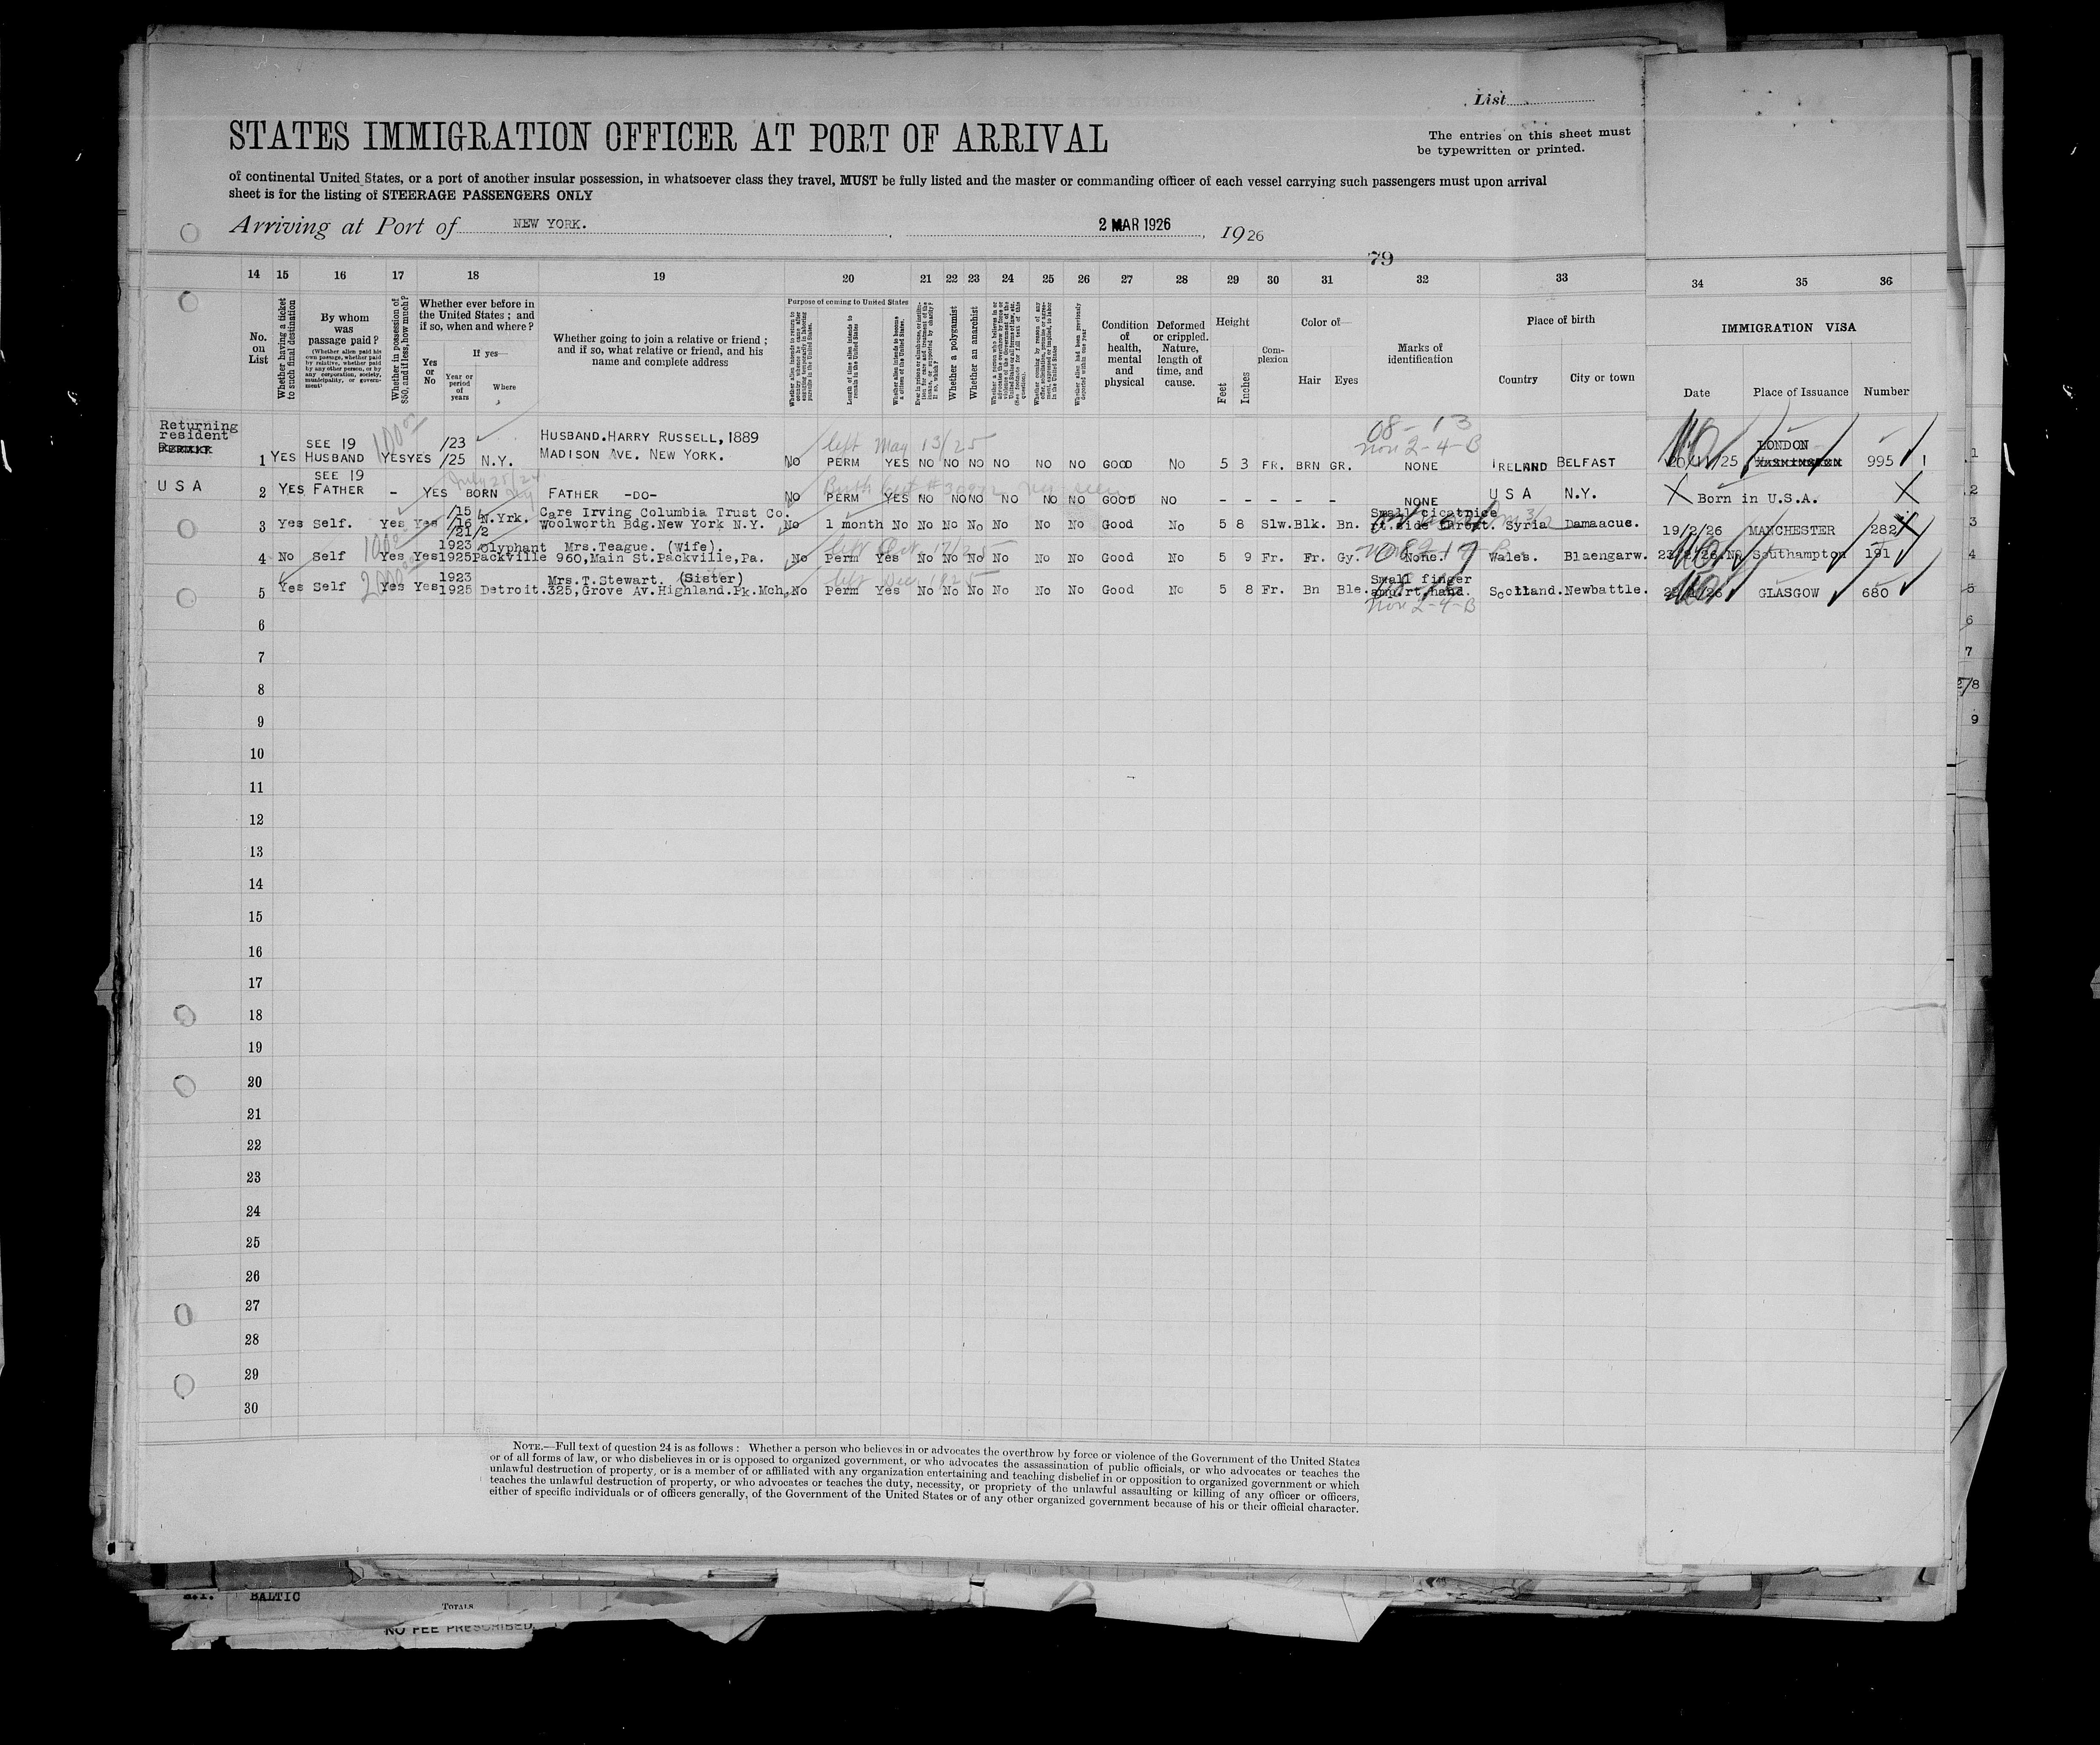 List
STATES IMMIGRATION OFFICER AT PORT OF ARRIVAL
The entries on this sheet must
be typewritten or printed.
of continental United States, or a port of another insular possession, in whatsoever class they travel, MUST be fully listed and the master or commanding officer of each vessel carrying such passengers must upon arrival
sheet is for the listing of STEERAGE PASSENGERS ONLY
Arriving at Port of NEW YORK. , 2 MAR 1926 , 1926
79
14 15 16 17 18 19 20 21 22 23 24 25 26 27 28 29 30 31 32 33 34 35 36
No. on List
Whether having a ticket to such final destination
By whom was passage paid?
(Whether alien paid his own passage, whether paid by relative, whether paid by any other person, or by any corporation, society, municipality, or government)
Whether in possession of $50, and if less, how much?
Whether ever before in the United States; and if so, when and where?
Yes or No
If yes—
Year or period of years
Where
Whether going to join a relative or friend; and if so, what relative or friend, and his name and complete address
Purpose of coming to United States
Length of time alien intends to remain in the United States
Whether alien intends to become a citizen of the United States
Whether a polygamist
Whether an anarchist
Condition of health, mental and physical
Deformed or crippled. Nature, length of time, and cause.
Height
Feet
Inches
Complexion
Color of—
Hair
Eyes
Marks of identification
Place of birth
Country
City or town
IMMIGRATION VISA
Date
Place of Issuance
Number
Returning
resident
08-13
left May 13/25
non 2-4-B
SEE 19 /23 HUSBAND.HARRY RUSSELL, 1889 LONDON
1 YES HUSBAND YES YES /25 N.Y. MADISON AVE. NEW YORK. NO PERM YES NO NO NO NO NO NO GOOD NO 5 3 FR. BRN GR. NONE IRELAND BELFAST 995 1
SEE 19
U S A
2 YES FATHER - YES BORN FATHER -DO- NO PERM YES NO NO NO NO NO NO GOOD NO - - - - - NONE U S A N.Y. Born in U.S.A. 2
/15 Care Irving Columbia Trust Co. Small cicatrice
3 Yes Self. Yes Yes /16 N.Yrk. Woolworth Bdg.New York N.Y. No 1 month No No No No No No No Good No 5 8 Slw. Blk. Bn. side throat. Syria Damaacus. 19/2/26 MANCHESTER 282 3
/21/2
left Oct. 17/25
1923 Olyphant Mrs.Teague. (Wife).
4 No Self Yes Yes 1925 Packville 960,Main St.Packville,Pa. No Perm Yes No No No No No No Good No 5 9 Fr. Fr. Gy. None. Wales. Blaengarw. Southampton 191 4
left Dec. 1925
1923 Mrs.T.Stewart. (Sister) Small finger
5 Yes Self Yes Yes 1925 Detroit. 325,Grove Av.Highland.Pk.Mch, No Perm Yes No No No No No No Good No 5 8 Fr. Bn Ble. rt hand. Scotland. Newbattle. GLASGOW 680 5
non 2-4-B
6
7
8
9
10
11
12
13
14
15
16
17
18
19
20
21
22
23
24
25
26
27
28
29
30
NOTE.—Full text of question 24 is as follows: Whether a person who believes in or advocates the overthrow by force or violence of the Government of the United States
or of all forms of law, or who disbelieves in or is opposed to organized government, or who advocates the assassination of public officials, or who advocates or teaches the
unlawful destruction of property, or is a member of or affiliated with any organization entertaining and teaching disbelief in or opposition to organized government or which
teaches the unlawful destruction of property, or who advocates or teaches the duty, necessity, or propriety of the unlawful assaulting or killing of any officer or officers,
either of specific individuals or of officers generally, of the Government of the United States or of any other organized government because of his or their official character.
BALTIC
TOTALS
NO FEE PRESCRIBED